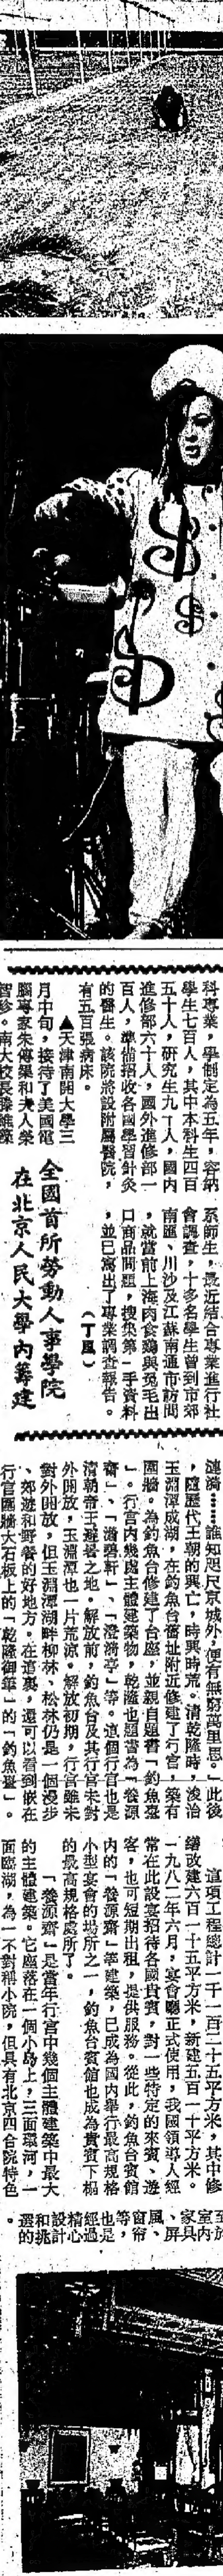 科專業，學制定為五年，容納
學生七百人，其中本科生四百
五十人，研究生九十人，國內
進修部六十人，國外進修部一
百人，準備招收各國學習針灸
的醫生。該院將設附屬醫院，
有五百張病床。
▲天津南開大學三
月中旬，接待了美國電
腦專家朱傳榘和夫人榮
智珍。南大校長滕維藻
系師生，最近結合專業進行社
會調查，十多名學生曾到市郊
南匯、川沙及江蘇南通市訪問
，就當前上海肉食鷄與兔毛出
口商品問題，搜集第一手資料
，並已寫出了專業調查報告。
（丁風）
全國首所勞動人事學院
在北京人民大學內籌建
漣漪……誰知咫尺京城外，便有無窮萬里思。」此後
，隨歷代王朝的興亡，時興時荒。清乾隆時，浚治
玉淵潭成湖，在釣魚台舊址附近修建了行宮，築有
圍牆。為釣魚台修建了台座，並親自題書「釣魚臺
」。行宮內幾處主體建築物，乾隆也題書為「養源
齋」、「瀟碧軒」、「澄漪亭」等。這個行宮也是
清朝帝王避暑之地。解放前，釣魚台及其行宮未對
外開放，玉淵潭也一片荒涼。解放初期，行宮雖未
對外開放，但玉淵潭湖畔柳林、松林仍是一個漫步
、郊遊和野餐的好地方。在這裏，還可以看到嵌在
行宮圍牆大石板上的「乾隆御筆」的「釣魚臺」。
這項工程總計一千一百二十五平方米，其中修
繕改建六百一十五平方米，新建五百一十平方米。
一九八二年六月，宴會廳正式使用，我國領導人經
常在此設宴招待各國貴賓，對一些特定的來賓、遊
客，也可短期出租，提供服務。從此，釣魚台賓館
內的「養源齋」等建築，已成為國內舉行最高規格
小型宴會的場所之一，釣魚台賓館也成為貴賓下榻
的最高規格處所了。
「養源齋」是當年行宮中幾個主體建築中最大
的主體建築。它座落在一個小島上，三面環河，一
面臨湖，為一不對稱小院，但具有北京四合院特色。
至於
室內
家具
、屏
風、
窗帘
等，
也是
經過
精心
設計
和挑
選的